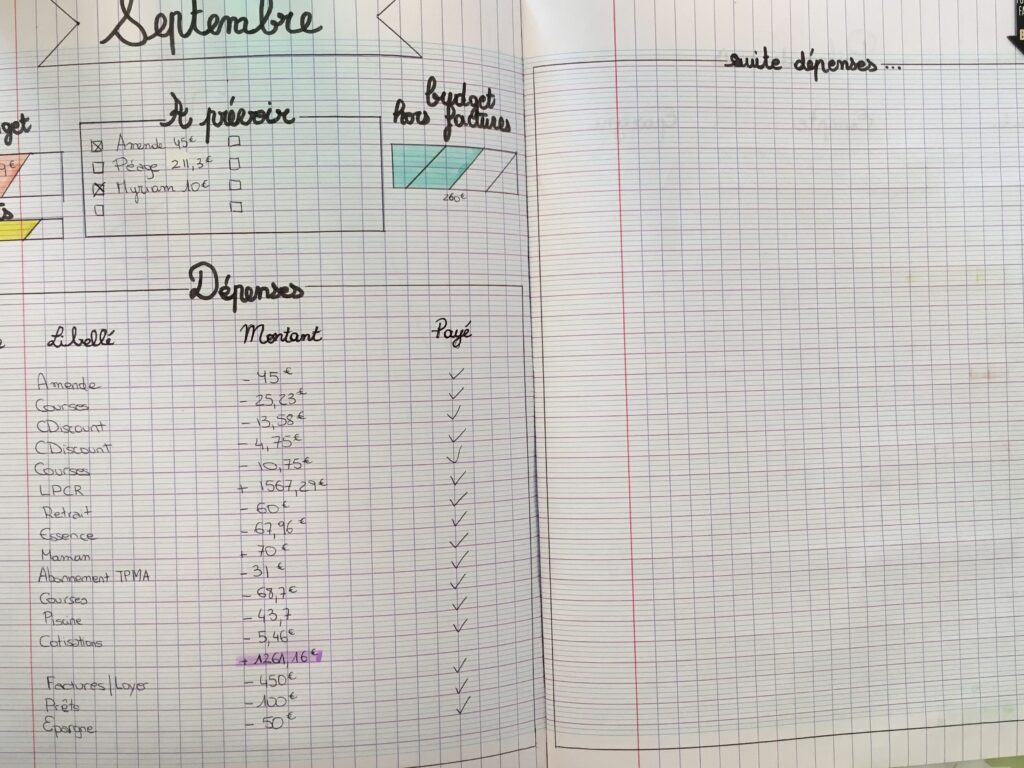 Septembre
À prévoir
Amende 45€
Péage 211,3€
Myriam 10€
get
9€
budget
hors factures
260€
Dépenses
Libellé Montant Payé
Amende - 45€ ✓
Courses - 25,23€ ✓
CDiscount - 13,58€ ✓
CDiscount - 4,75€ ✓
Courses - 10,75€ ✓
LPCR + 1567,29€ ✓
Retrait - 60€ ✓
Essence - 67,96€ ✓
Maman + 70€ ✓
Abonnement TPMA - 31€ ✓
Courses - 68,7€ ✓
Piscine - 43,7 ✓
Cotisations - 5,46€ ✓
+ 1261,16€
Factures/Loyer - 450€ ✓
Prêts - 100€ ✓
Epargne - 50€ ✓
suite dépenses...